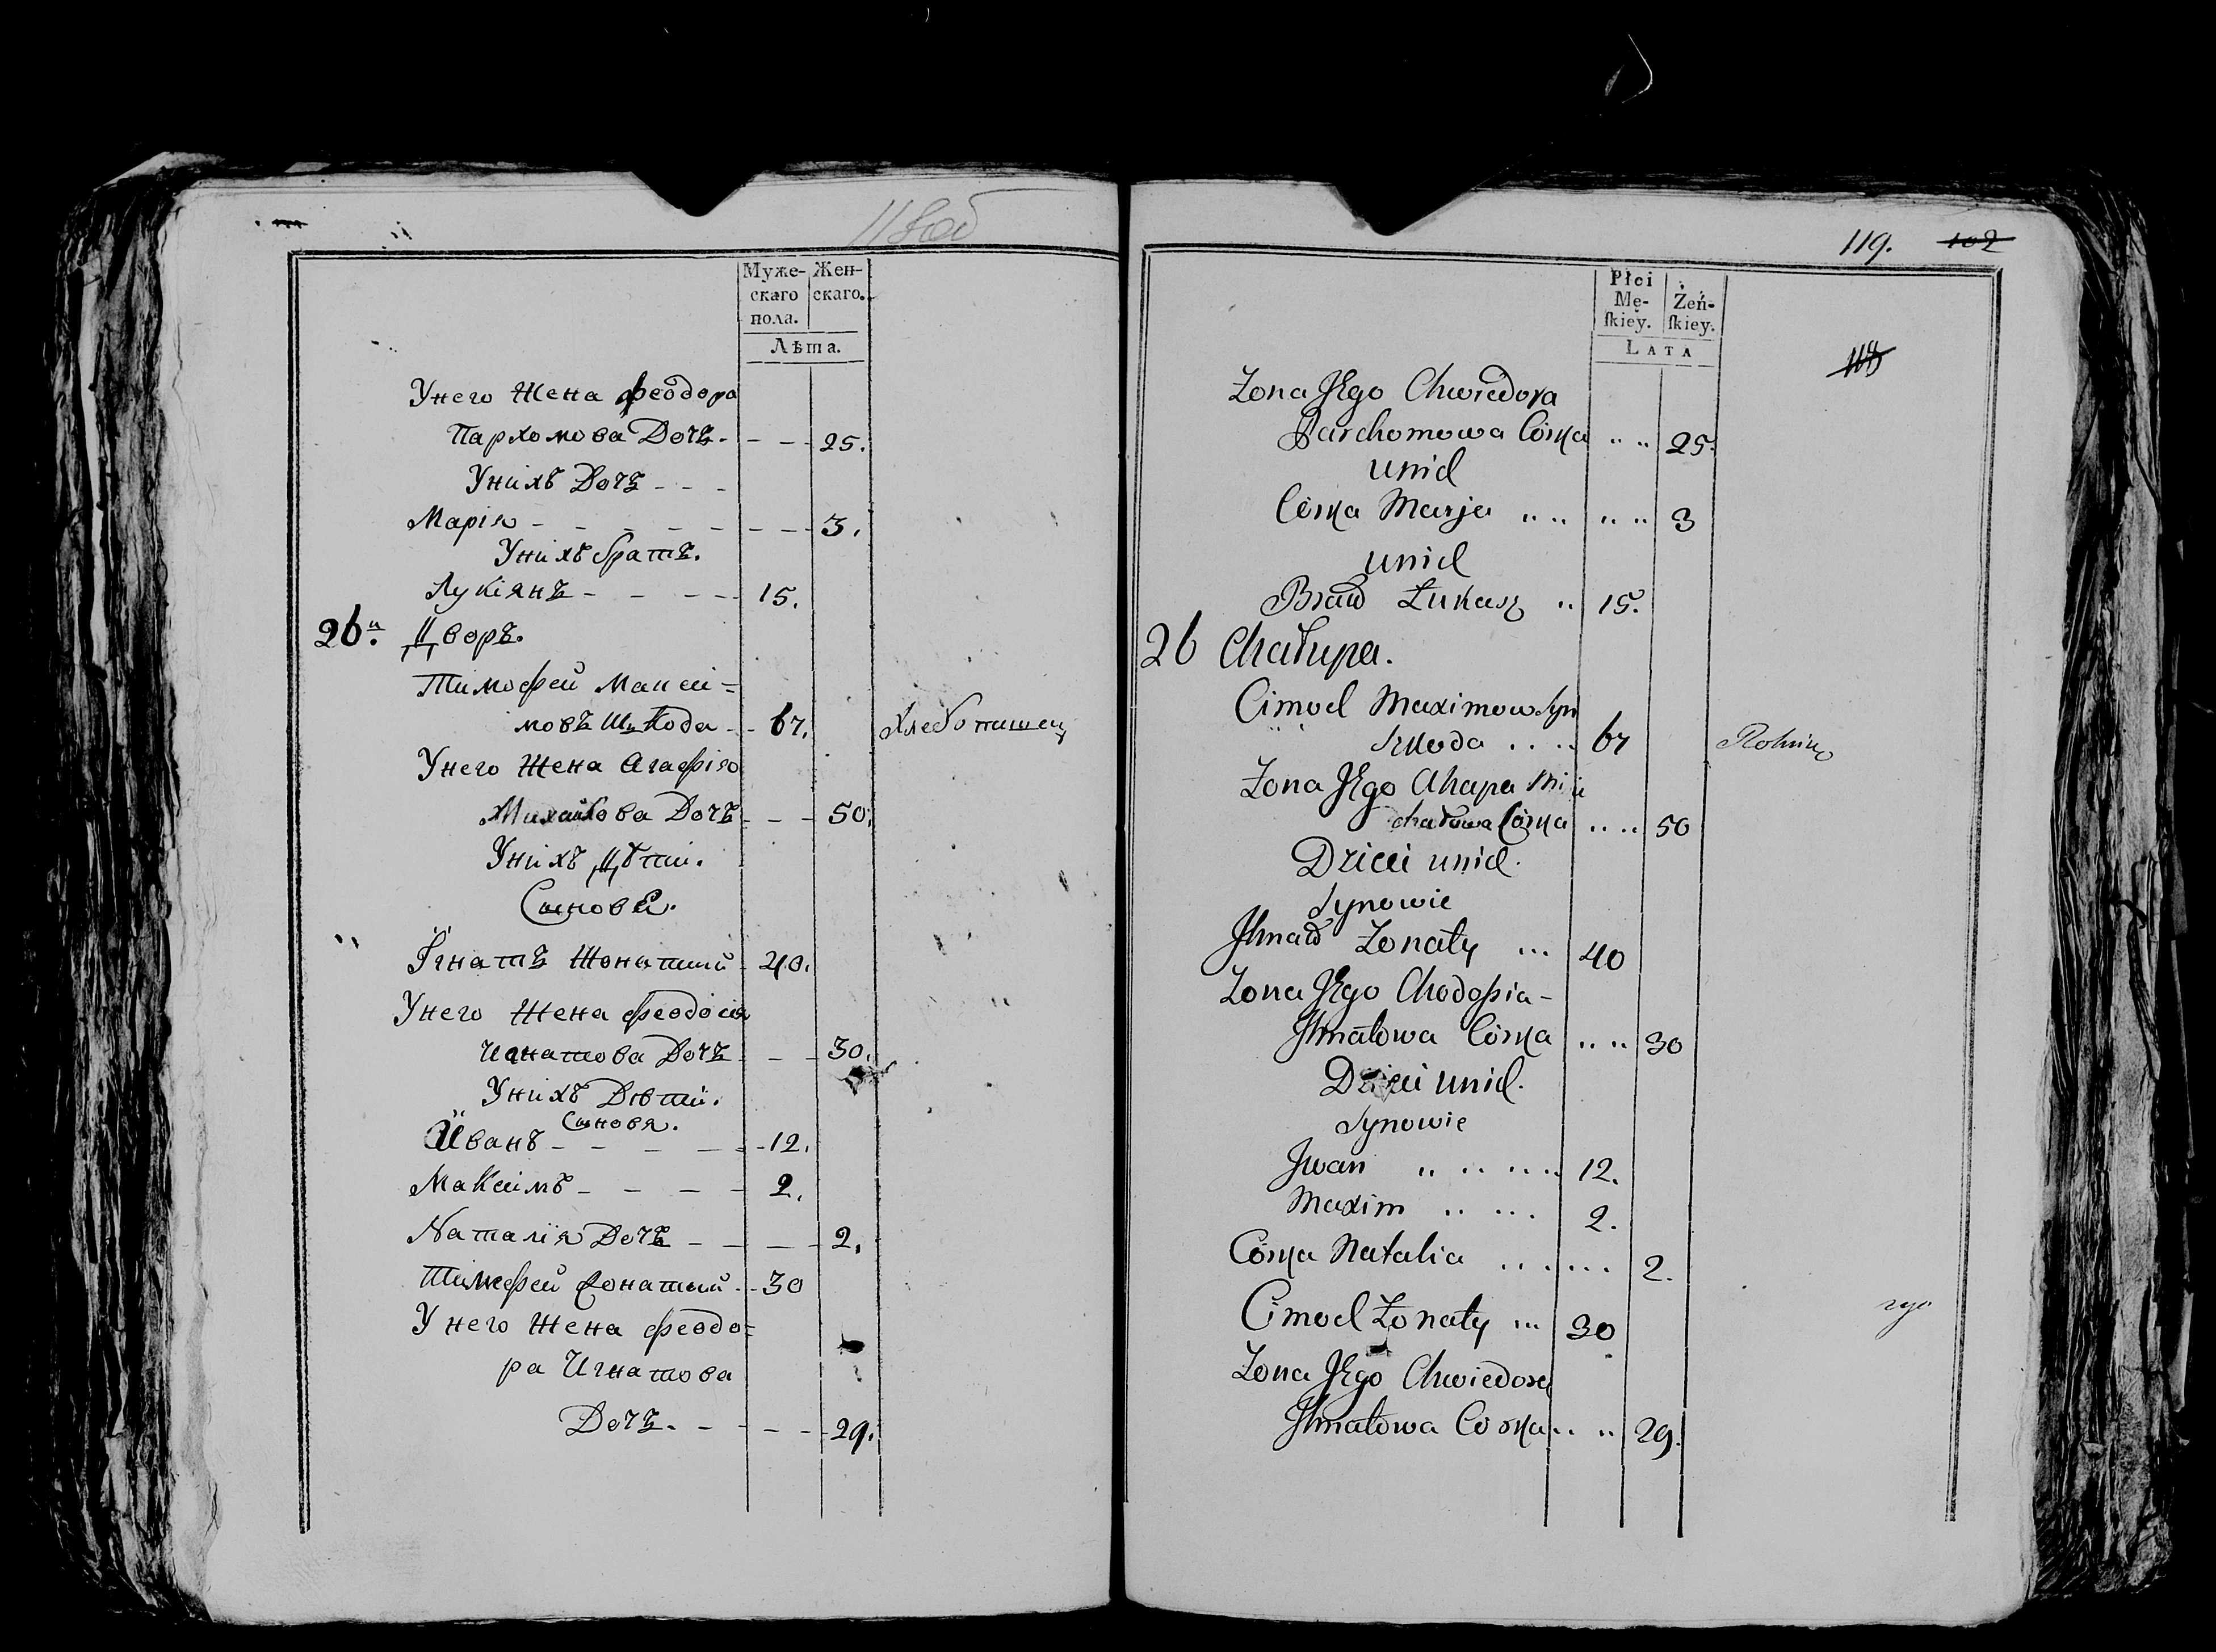 118об
Муже-
скаго
пола.
Жен-
скаго.
Лѣта.
Унего жена Феодора
Пархомова Дочъ. - - 25.
Унихъ Дочъ - - -
Марія - - - - - - - - 3.
Унихъ братъ.
Лукіянъ - - - - 15.
26й. Дворъ.
Тимофей Макси=
мовъ Шкода - - 67. Хлебопашец
Унего жена Агафія
Михайлова Дочъ - - 50.
Унихъ Дѣти.
Сыновя.
Игнатъ жонатый 40.
Унего жена Феодосія
Игнатова Дочъ - - 30.
Унихъ Дѣти.
Сыновя.
Иванъ - - - - - 12.
Максимъ - - - - 2.
Наталія Дочъ - - - - 2.
Тимофей жонатый - - 30
Унего жена Феодо=
ра Игнатова
Дочъ. - - - - 29.
119. 102
118
Płci
Mę-
ſkiey.
Żeń-
ſkiey.
LATA
Żona Jego Chwiedora
Parchomowa Córka .. .. 25.
unich
Córka Marja .. .. .. .. 3
unich
Brat Łukasz .. 15.
26 Chałupa.
Cimoch Maximow Syn
Szkoda .... 67 Rolnik
Żona Jego Ahapa Mi
chałowa Córka .. .. 50
Dzieci unich.
Synowie
Ihnat Żonaty ... 40
Żona Jego Chodosia -
Ihnatowa Córka .. .. 30
Dzieci unich.
Synowie
Jwan .. .. .. .. 12.
Maxim .. ... 2.
Córka Natalia ...... 2.
Cimoch Żonaty ... 30
Żona Jego Chwiedora
Ihnatowa Corka .. .. 29.